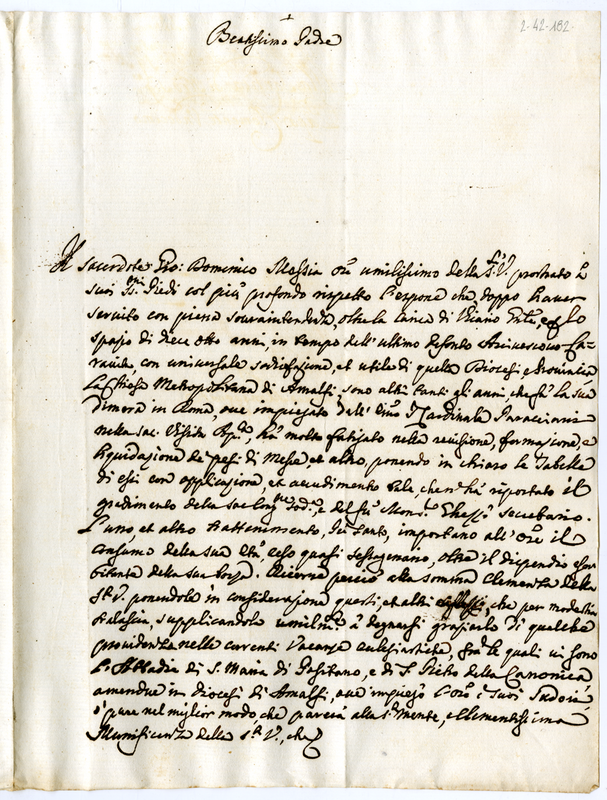 2-42-182-
Beatissimo Padre
Il Sacerdote Gio: Domenico Massia Ore umilissimo della S.tà V. prostrato à
suoi S.mi Piedi col più profondo rispetto l'espone che, doppo haver
servito con piena sovraintendenza, oltre la carica di Vicario Gnle, per lo
spazio di diece otto anni, in tempo dell'ultimo defonto Arcivescovo
con universale sodisfazione, et utile di quella Diocesi e Provincia
la Chiesa Metropolitana di Amalfi, sono altri tanti gli anni, che fà la sua
dimora in Roma, ove impiegato dall' Em̃o S.r Cardinale Paracciani
nella Sac. Visita Ap.ca, hà molto fatigato nella revisione, formazione, e
liquidazione de pesi di Messe, et altro, ponendo in chiaro le Tabelle
di essi con applicazione, et accudimento tale, che ne hà riportato il
gradimento della Sac. Cong.ne Sod.a, e del fù Mons.r Segretario.
L'uno, et altro trattenimento, Pre Santo, importano all' Ore il
consumo della sua Età, reso quasi sessagenario, oltre il dispendio esor-
bitante della sua borsa. Ricorre perciò alla somma Clemenza della
S.tà V. ponendole in considerazione questi, et altri che per modestia
tralascia, supplicandola umilm.te à degnarsi graziarlo di qualche
providenza nelle correnti Vacanze ecclesiastiche, frà le quali vi sono
l'Abbadia di S. Maria di Positano, e di S. Pietro della Canonica
amendue in Diocesi di Amalfi, ove impiegò l'Ore i suoi sudori,
ò pure nel miglior modo, che parerà alla S.ta Mente, e Clementissima
Munificenza della S.tà V., che